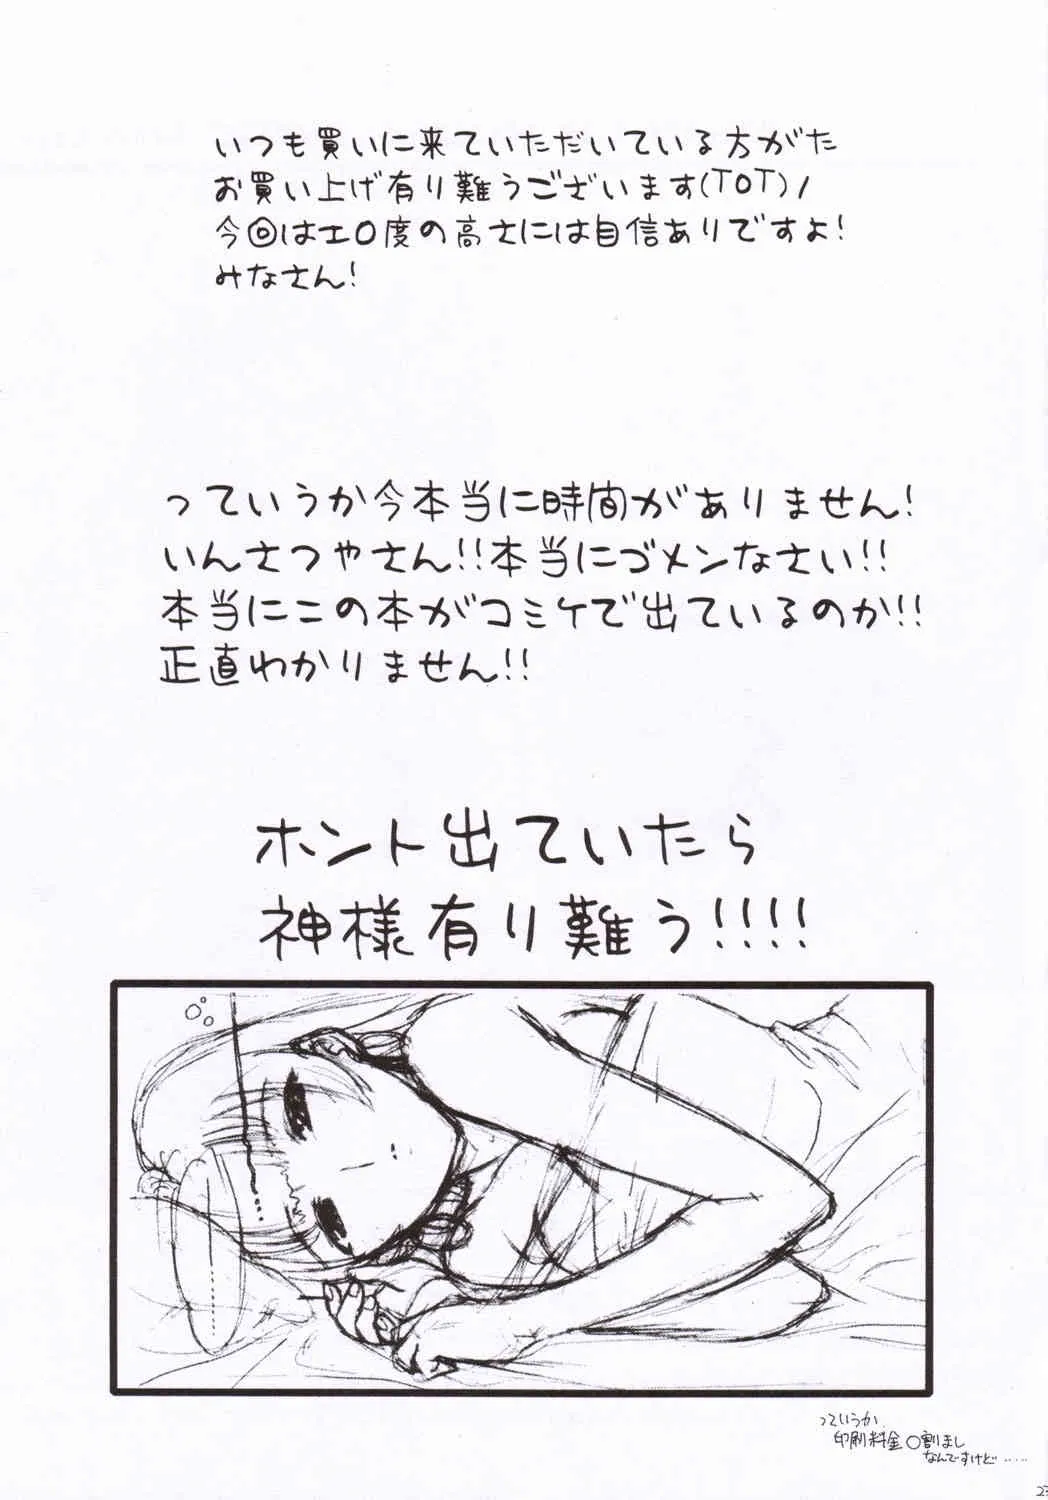 いつも買いに来ていただいている方がた
お買い上げ有り難うございます(TOT)/
今回はエ〇度の高さには自信ありですよ!
みなさん!
っていうか今本当に時間がありません!
いんさつやさん!!本当にゴメンなさい!!
本当にこの本がコミケで出ているのか!!
正直わかりません!!
ホント出ていたら
神様有り難う!!!!
っていうか
印刷料金〇割まし
なんですけど……
23